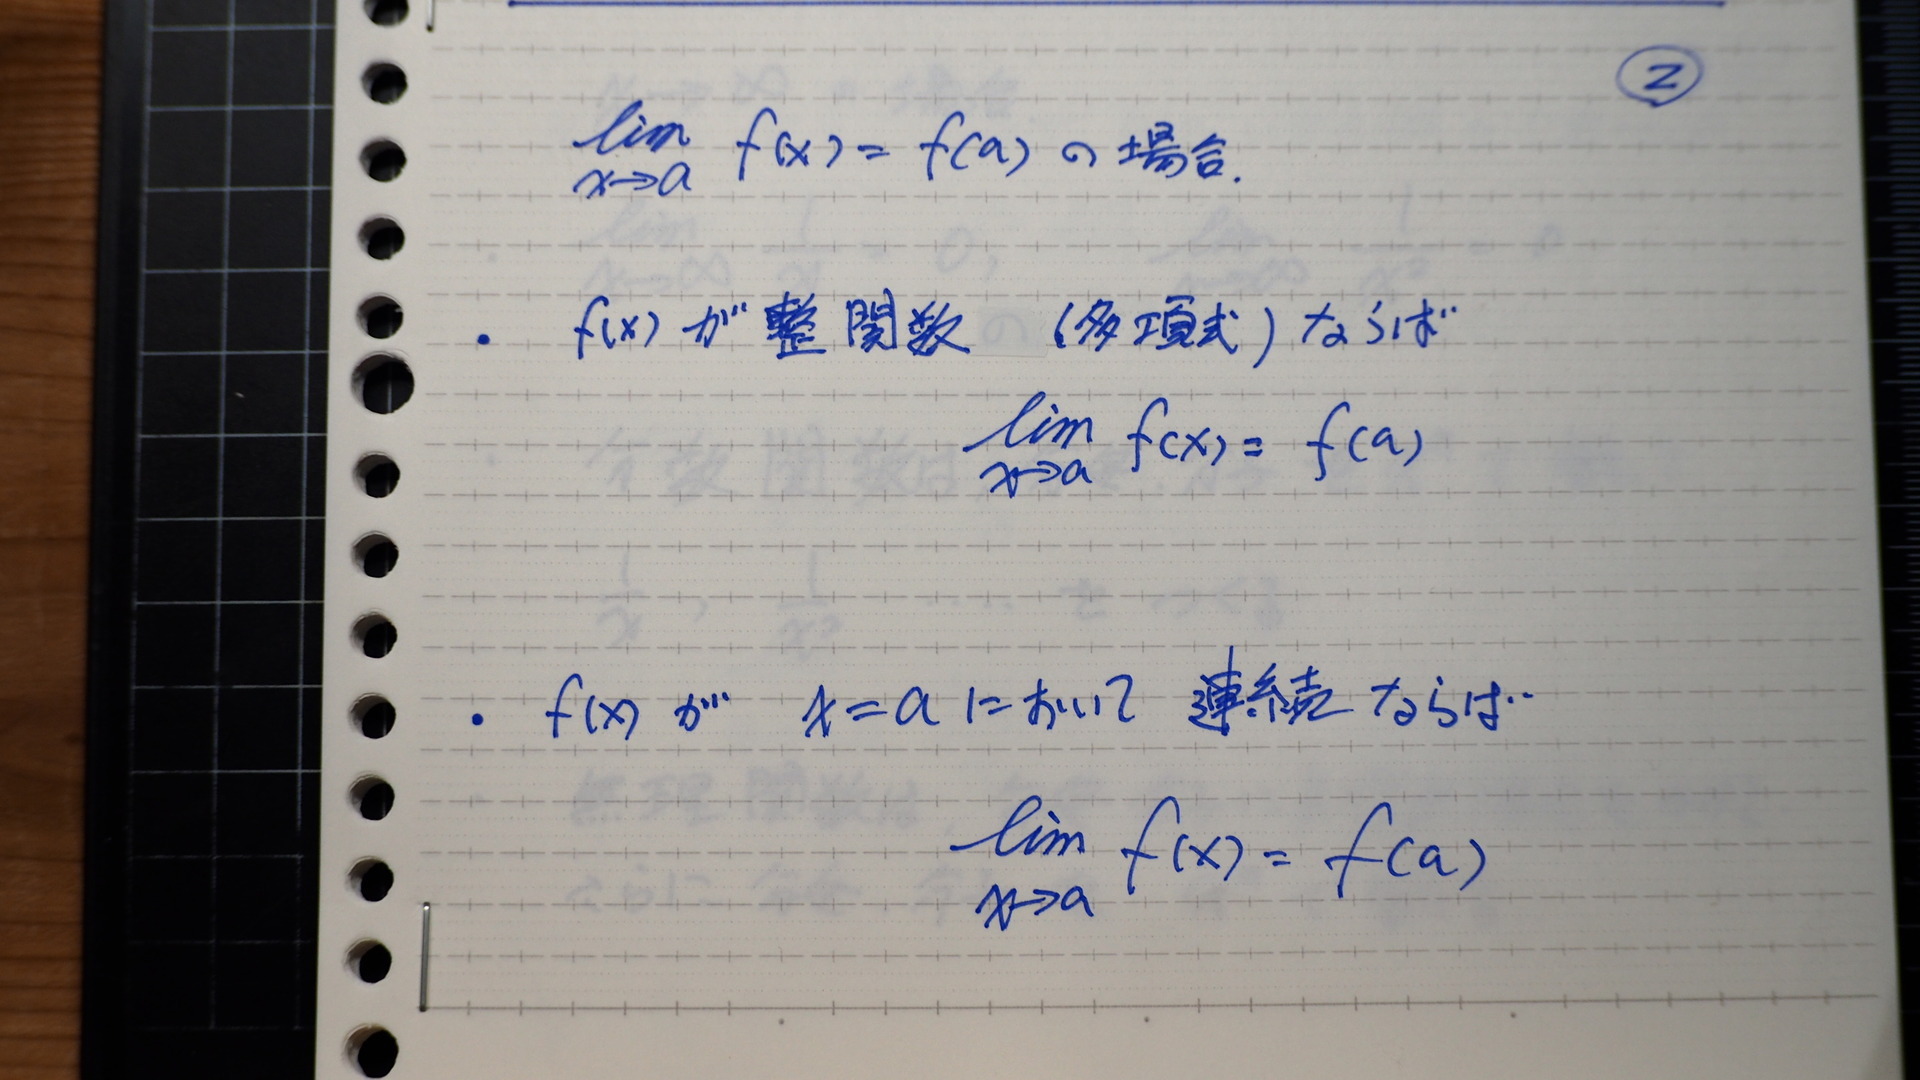 ②
lim f(x) = f(a) の場合.
x→a
・ f(x) が 整関数 (多項式) ならば
lim f(x) = f(a)
x→a
・ f(x) が x=a において 連続 ならば
lim f(x) = f(a)
x→a